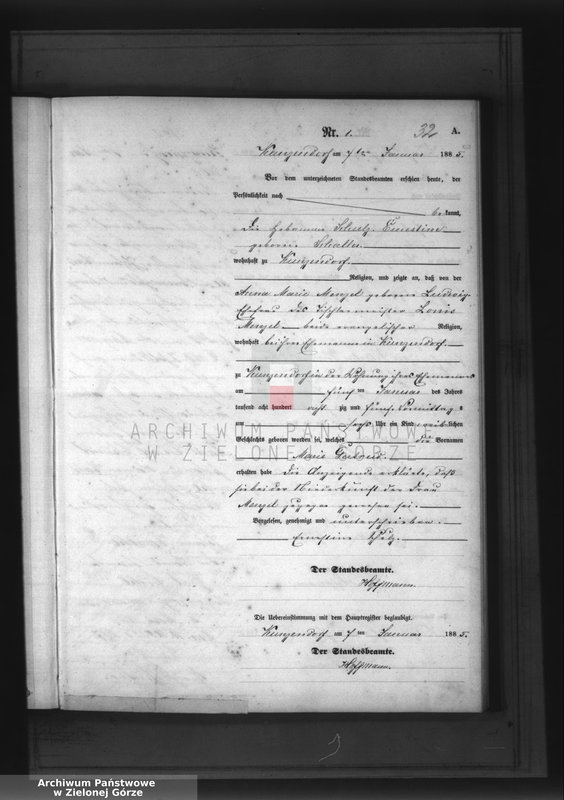 Nr. 1. 32 A.
Kunzendorf am 7ten Januar 1885.
Vor dem unterzeichneten Standesbeamten erschien heute, der
Persönlichkeit nach
be kannt,
die Hebamme Schulz, Ernestine
geborene
wohnhaft zu Kunzendorf.
Religion, und zeigte an, daß von der
Anna Marie Menzel geborene Ludwig,
Ehefrau des Tischlermeister Louis
Menzel beide evangelischer Religion,
wohnhaft bei ihrem Ehemanne in Kunzendorf
zu Kunzendorf in der Wohnung ihres Ehemannes
am fünften Januar des Jahres
tausend acht hundert acht zig und fünf Vormittag s
um sechs Uhr ein Kind weib lichen
Geschlechts geboren worden sei, welches die Vornamen
Marie
erhalten habe die Anzeigende erklärte, daß
sie bei der Niederkunft der Frau
Menzel zugegen gewesen sei.
Vorgelesen, genehmigt und unterschrieben.
Ernestine
Der Standesbeamte.
Hoffmann.
Die Uebereinstimmung mit dem Hauptregister beglaubigt.
Kunzendorf am 7 ten Januar 1885.
Der Standesbeamte.
Hoffmann.
ARCHIWUM PAŃSTWOWE
W ZIELONEJ GÓRZE
Archiwum Państwowe
w Zielonej Górze